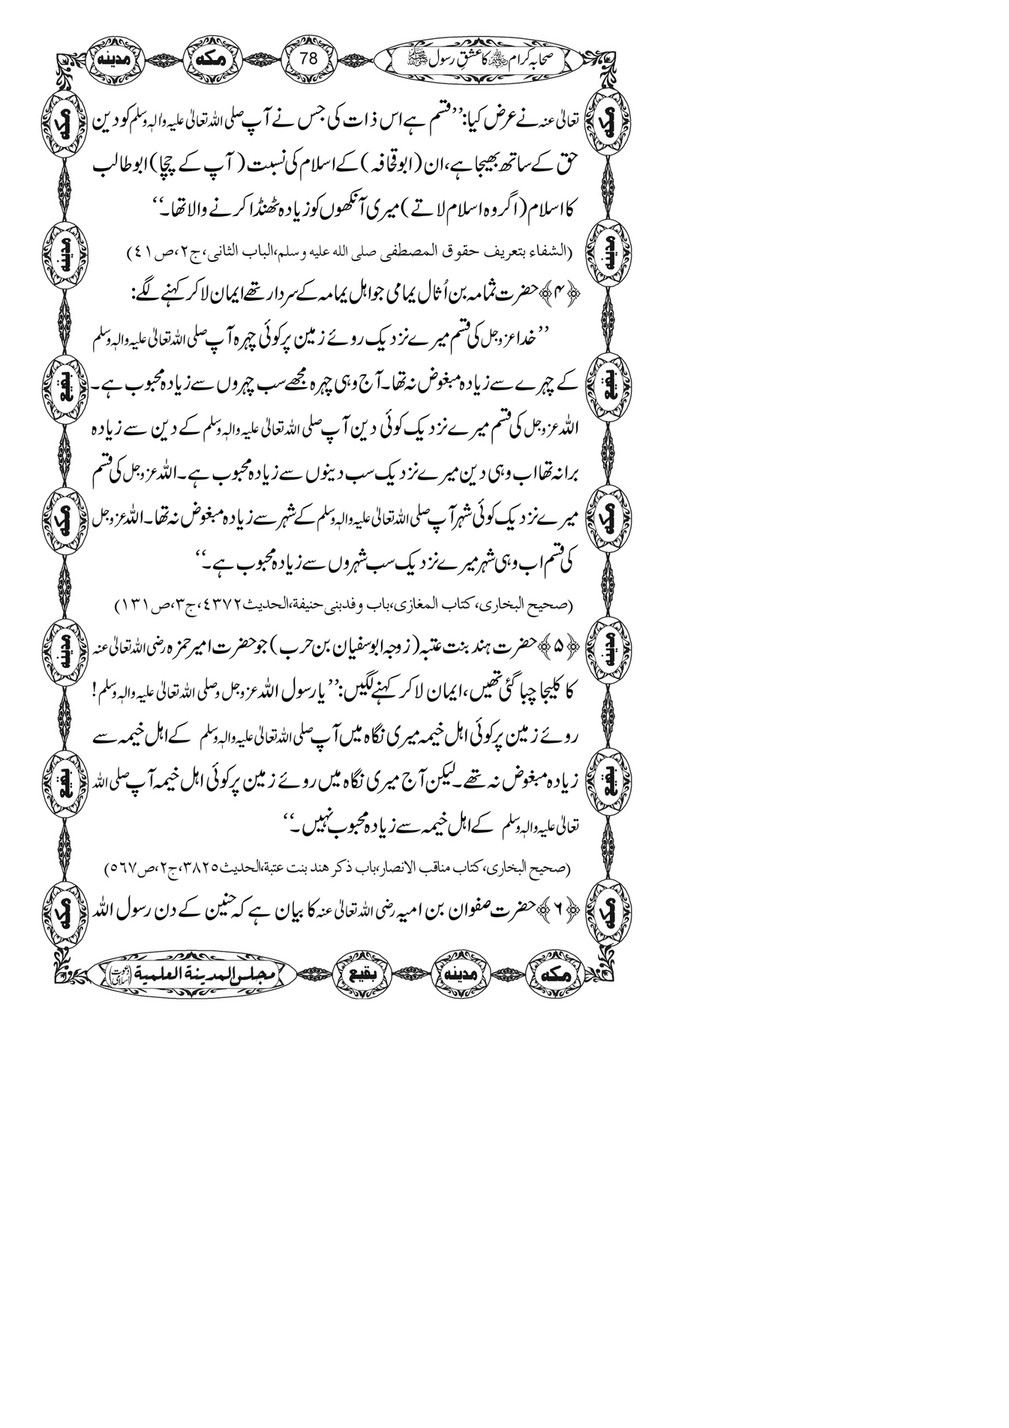 صحابہ کرام کا عشق رسول ﷺ
78
مکه
مدینه
تعالیٰ عنہ نے عرض کیا: ’’قسم ہے اس ذات کی جس نے آپ صلی اللہ تعالیٰ علیہ والہٖ وسلم کو دین
حق کے ساتھ بھیجا ہے، ان (ابو قحافہ) کے اسلام کی نسبت (آپ کے چچا) ابو طالب
کا اسلام (اگر وہ اسلام لاتے) میری آنکھوں کو زیادہ ٹھنڈا کرنے والا تھا۔‘‘
(الشفاء بتعريف حقوق المصطفى صلى الله عليه وسلم،الباب الثانی،ج٢،ص٤١)
﴿۴﴾ حضرت ثمامہ بن اُثال یمامی جو اہل یمامہ کے سردار تھے ایمان لا کر کہنے لگے:
’’خدا عزوجل کی قسم میرے نزدیک روئے زمین پر کوئی چہرہ آپ صلی اللہ تعالیٰ علیہ والہٖ وسلم
کے چہرے سے زیادہ مبغوض نہ تھا۔ آج وہی چہرہ مجھے سب چہروں سے زیادہ محبوب ہے۔
اللہ عزوجل کی قسم میرے نزدیک کوئی دین آپ صلی اللہ تعالیٰ علیہ والہٖ وسلم کے دین سے زیادہ
برا نہ تھا اب وہی دین میرے نزدیک سب دینوں سے زیادہ محبوب ہے۔ اللہ عزوجل کی قسم
میرے نزدیک کوئی شہر آپ صلی اللہ تعالیٰ علیہ والہٖ وسلم کے شہر سے زیادہ مبغوض نہ تھا۔ اللہ عزوجل
کی قسم اب وہی شہر میرے نزدیک سب شہروں سے زیادہ محبوب ہے۔‘‘
(صحیح البخاری،کتاب المغازی،باب وفدبنی حنیفة،الحدیث٤٣٧٢،ج٣،ص١٣١)
﴿۵﴾ حضرت ہند بنت عتبہ (زوجہ ابوسفیان بن حرب) جو حضرت امیر حمزہ رضی اللہ تعالیٰ عنہ
کا کلیجا چبا گئی تھیں، ایمان لا کر کہنے لگیں: ’’یارسول اللہ عزوجل وصلی اللہ تعالیٰ علیہ والہٖ وسلم!
روئے زمین پر کوئی اہل خیمہ میری نگاہ میں آپ صلی اللہ تعالیٰ علیہ والہٖ وسلم کے اہل خیمہ سے
زیادہ مبغوض نہ تھے۔ لیکن آج میری نگاہ میں روئے زمین پر کوئی اہل خیمہ آپ صلی اللہ
تعالیٰ علیہ والہٖ وسلم کے اہل خیمہ سے زیادہ محبوب نہیں۔‘‘
(صحیح البخاری،کتاب مناقب الانصار،باب ذکر هند بنت عتبة،الحدیث٣٨٢٥،ج٢،ص٥٦٧)
﴿۶﴾ حضرت صفوان بن امیہ رضی اللہ تعالیٰ عنہ کا بیان ہے کہ حنین کے دن رسول اللہ
مکه
مدینه
بقیع
مکه
مدینه
بقیع
مکه
مکه
مدینه
بقیع
مکه
مدینه
بقیع
مکه
مکه
مدینه
بقیع
مجلس المدینة العلمیة (دعوت اسلامی)